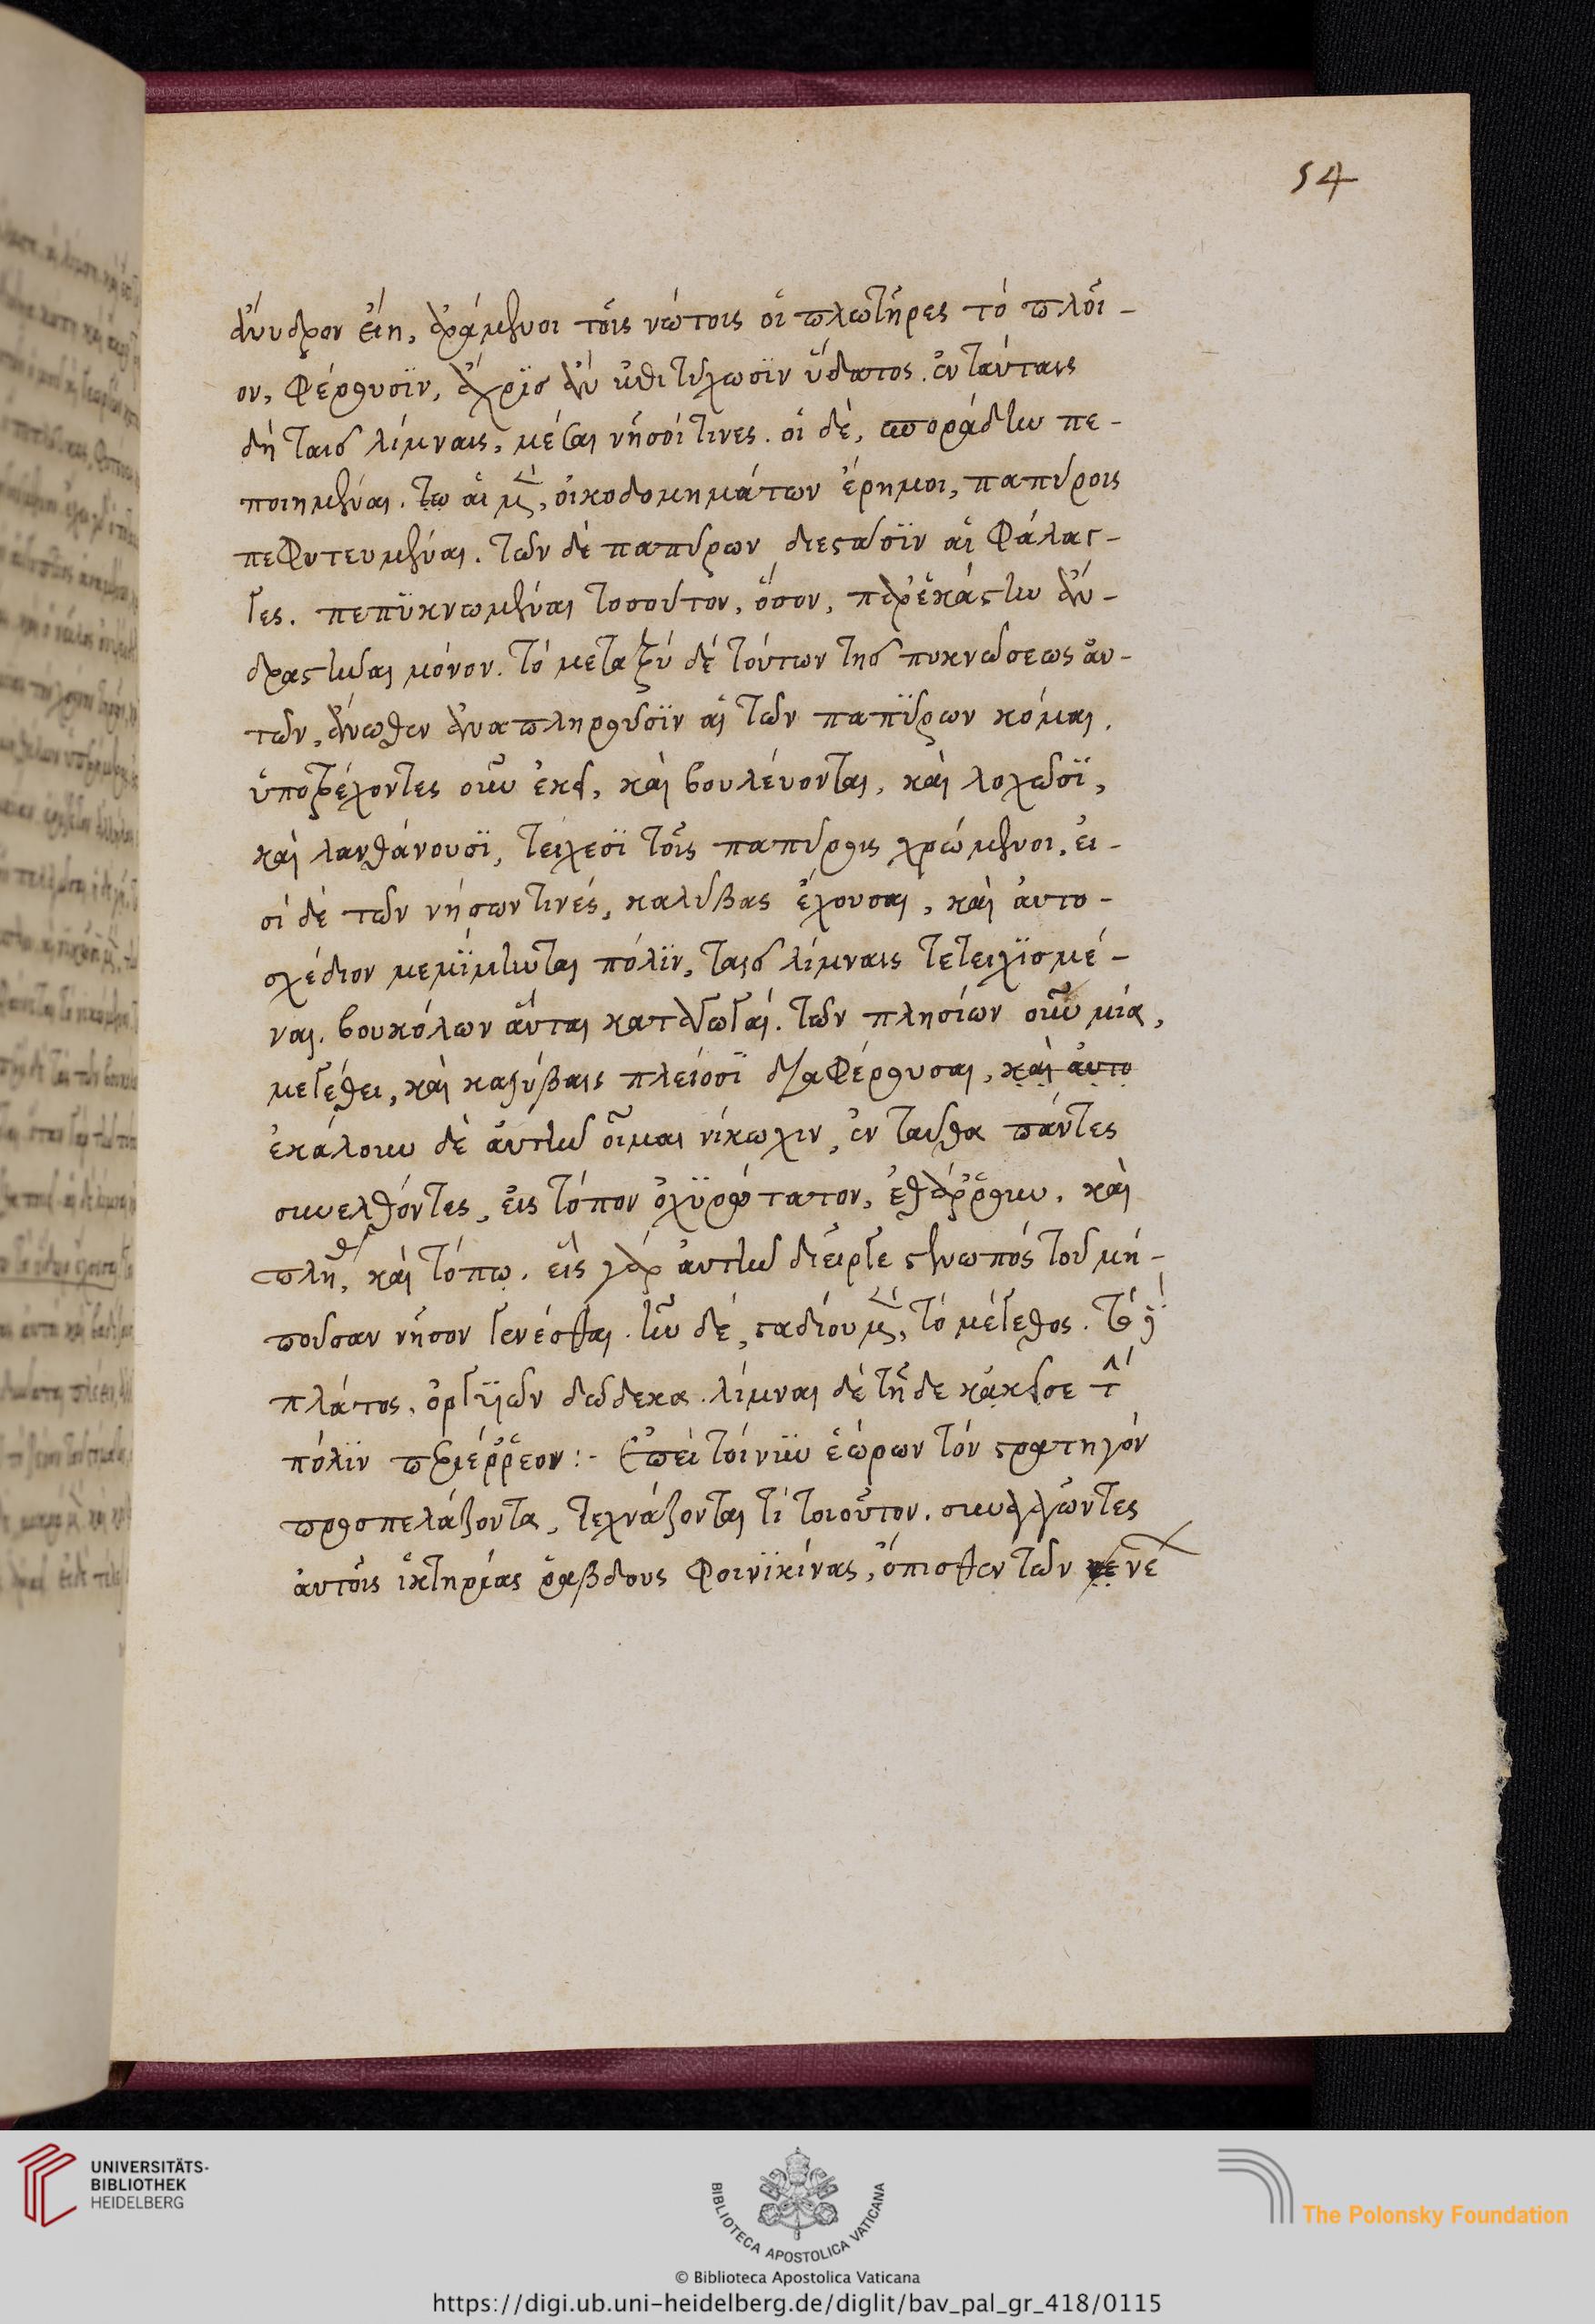 ἄνυδρον εἴη, ἀράμενοι τοῖς νώτοις οἱ πλωτῆρες τὸ πλοῖ-
ον, φέρουσϊν, ἄχρϊσ ἂν ἐπιτύχωσϊν ὕδατος. ἐν ταύταις
δὴ ταῖσ λίμναις, μέσαι νῆσοί τινες. οἱ δὲ, σποράδην πε-
ποιημέναι. τω αἱ μὲν, οἰκοδομημάτων ἔρημοι, παπύροις
πεφυτευμέναι. τῶν δὲ παπύρων διεστᾶσϊν αἱ φάλαγ-
γες. πεπϋκνωμέναι τοσοῦτον, ὅσον, παρ' ἑκάστην ἄν-
δρα στῆναι μόνον. τὸ μεταξὺ δὲ τούτων τῆσ πυκνώσεως αὐ-
τῶν, ἄνωθεν ἀναπληροῦσϊν αἱ τῶν παπΰρων κόμαι.
ὑποτρέχοντες οὖν ἐκεῖ, καὶ βουλέυονται, καὶ λοχῶσϊ,
καὶ λανθάνουσϊ, τείχεσϊ τοῖς παπύροις χρώμενοι. εἰ-
σὶ δὲ τῶν νήσων τινές, καλύβας ἔχουσαι, καὶ ἀυτο-
σχέδιον μεμΐμηνται πόλϊν, ταῖσ λίμναις τετειχϊσμέ-
ναι. βουκόλων αὗται καταγωγαί. τῶν πλησίων οὖν μία,
μεγέθει, καὶ καλύβαις πλείοσϊ διαφέρουσαι, καὶ ἀυτο
ἐκάλουν δὲ ἀυτὴν οἶμαι νίκωχιν, ἐν ταῦθα πάντες
συνελθόντες, εἰς τόπον ὀχϋρώτατον, ἐθάῤῥουν, καὶ
πλήθει, καὶ τόπῳ. εἷς γὰρ ἀυτὴν διεῖργε στενωπός τοῦ μὴ-
πουσαν νῆσον γενέσθαι. ἦν δὲ, σταδίου μὲν, τὸ μέγεθος. τὸ δὲ
πλάτος, ὀργϋιῶν δώδεκα. λίμναι δὲ τῇδε κἀκεῖσε τὴν
πόλϊν περιέῤῥεον :- Ἐπεὶ τοίνυν ἑώρων τὸν στρατηγὸν
προσπελάζοντα, τεχνάζονται τὶ τοιοῦτον. συναγαγόντες
ἀυτοῖς ἱκτηρίας ῥάβδους φοινϊκίνας, ὄπισθεν τῶν
54
UNIVERSITÄTS-
BIBLIOTHEK
HEIDELBERG
BIBLIOTECA APOSTOLICA VATICANA
The Polonsky Foundation
© Biblioteca Apostolica Vaticana
https://digi.ub.uni-heidelberg.de/diglit/bav_pal_gr_418/0115